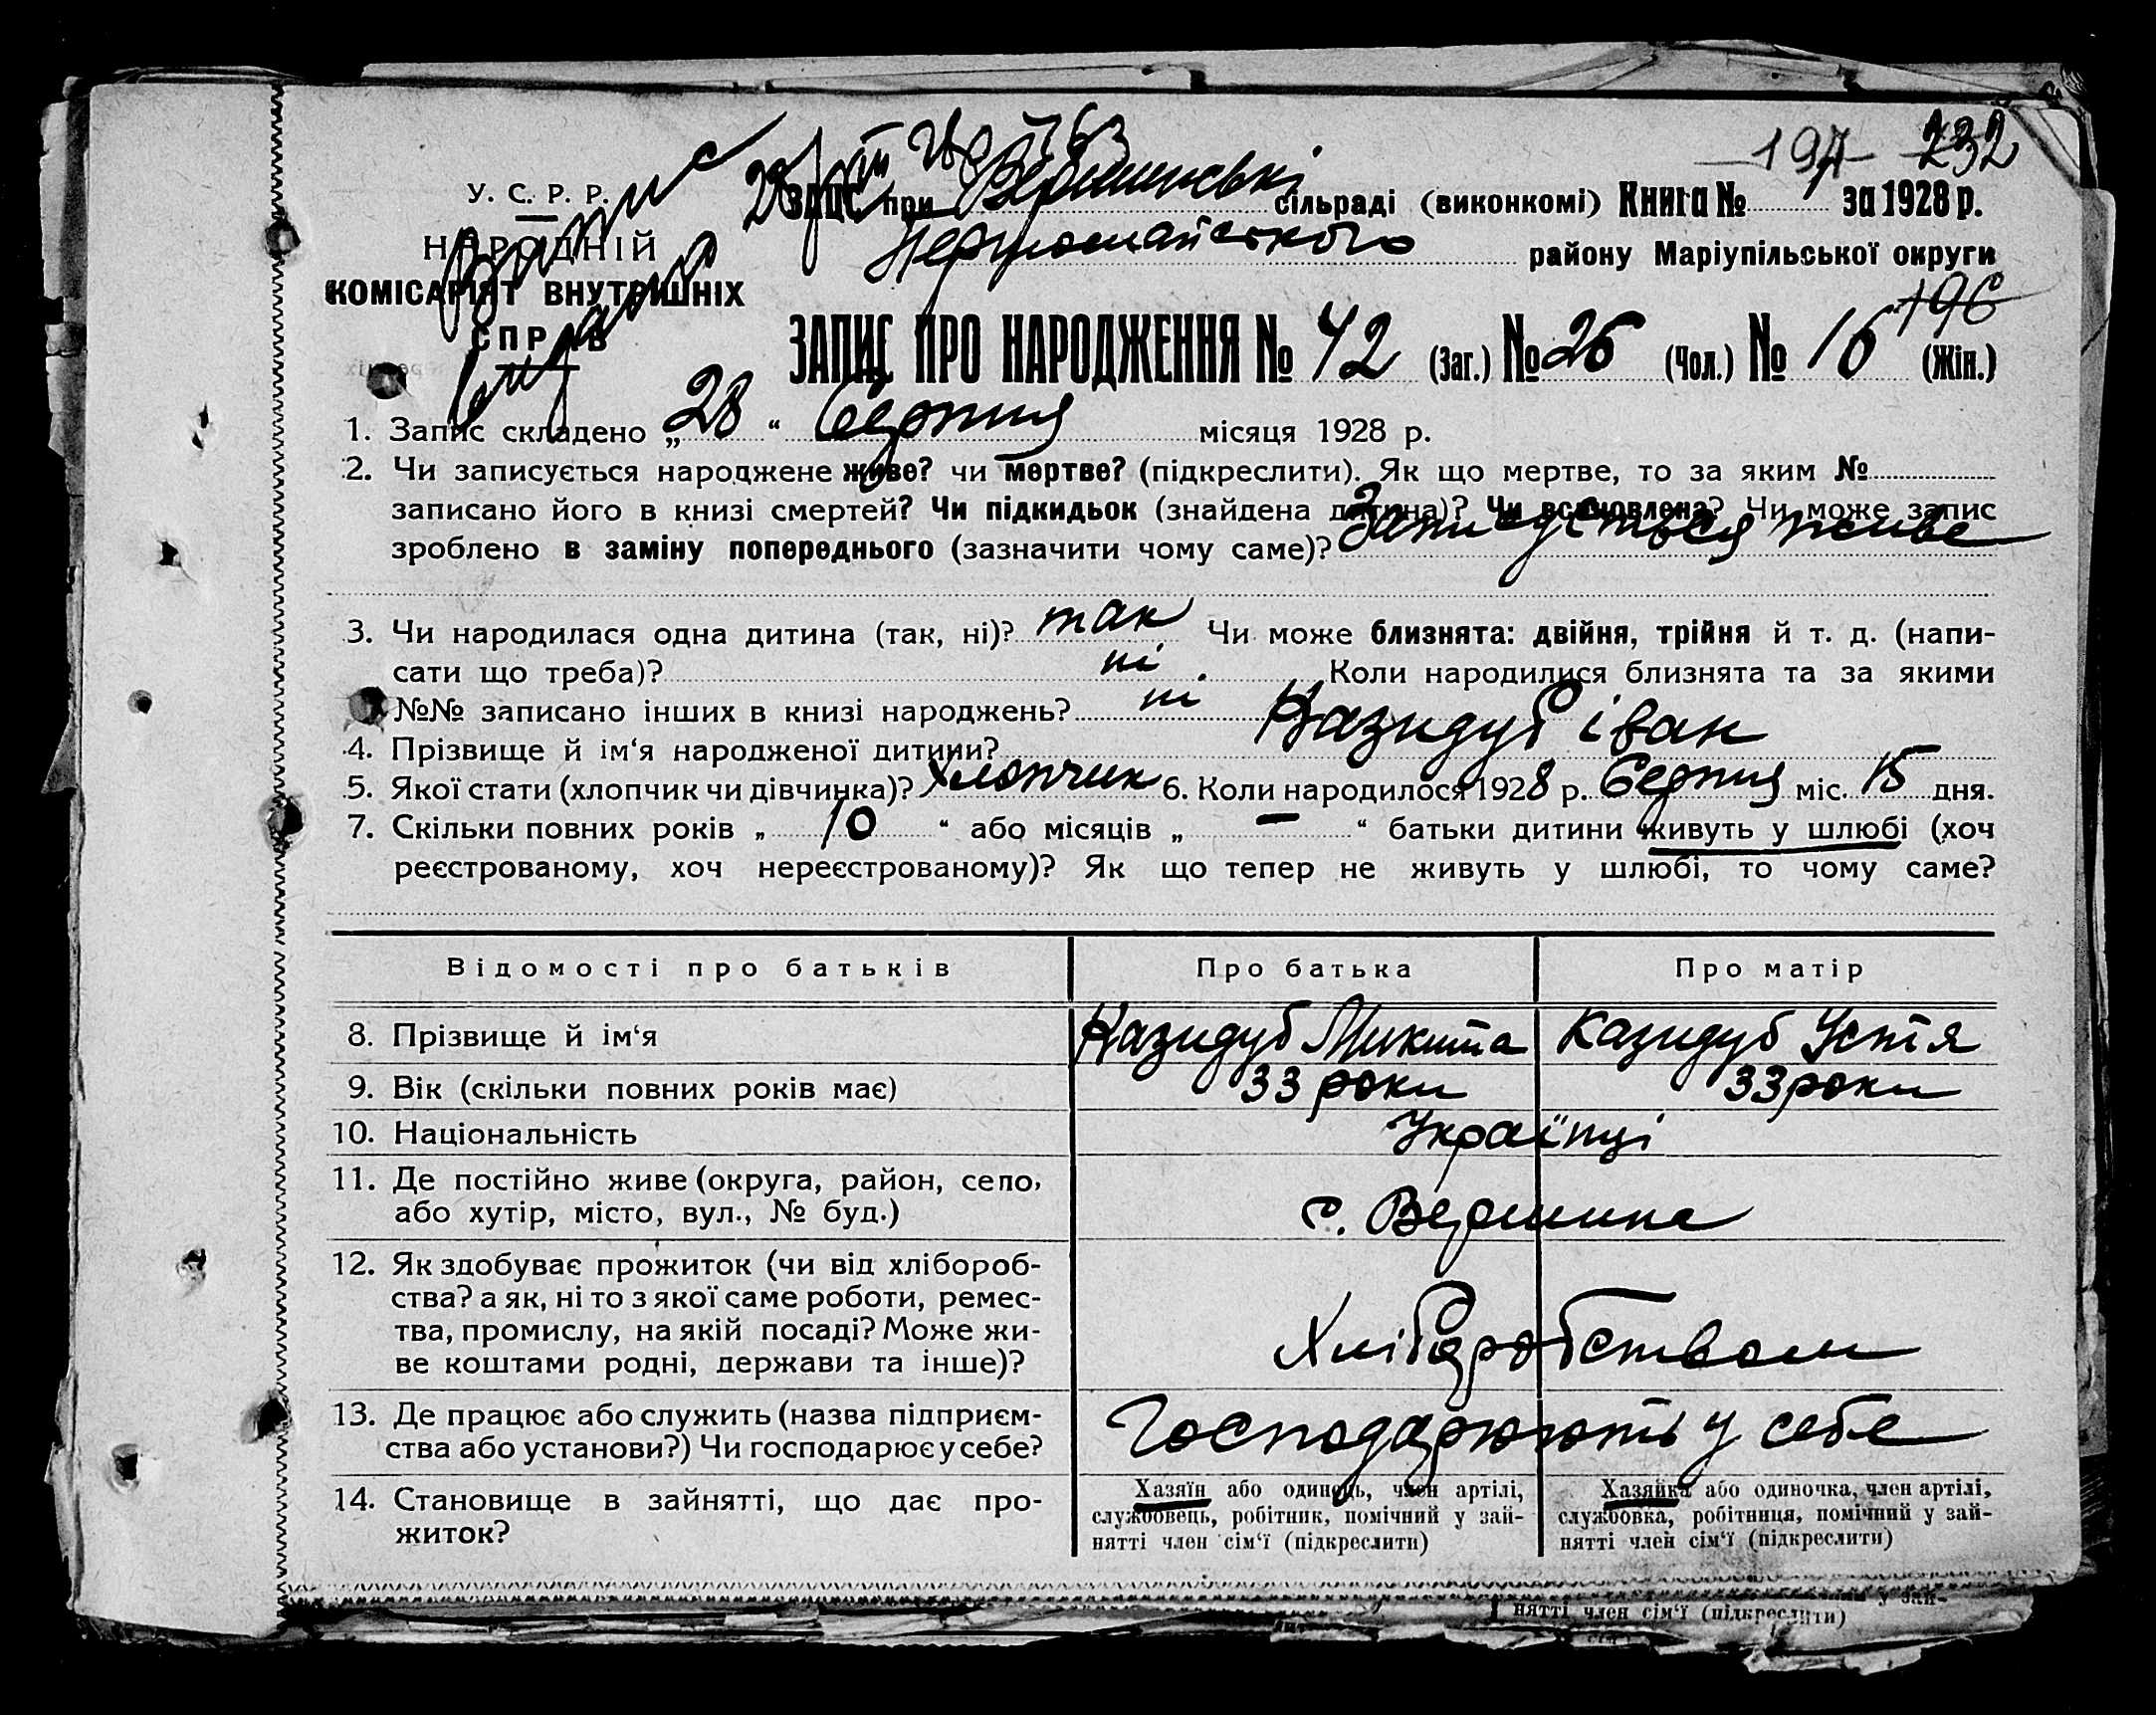 197 232
У. С. Р. Р.
ЗАГС при Вершинській сільраді (виконкомі) Книга № 1 за 1928 р.
НАРОДНІЙ
Першомайського району Маріупільської округи
КОМІСАРІЯТ ВНУТРІШНІХ
СПРАВ
196
ЗАПИС ПРО НАРОДЖЕННЯ № 42 (Заг.) № 26 (Чол.) № 16 (Жін.)
1. Запис складено „ 28 “ Серпня місяця 1928 р.
2. Чи записується народжене живе? чи мертве? (підкреслити). Як що мертве, то за яким №
записано його в книзі смертей? Чи підкидьок (знайдена дитина)? Чи встановлена? Чи може запис
зроблено в заміну попереднього (зазначити чому саме)? Записується живе
3. Чи народилася одна дитина (так, ні)? так Чи може близнята: двійня, трійня й т. д. (напи-
сати що треба)? ні Коли народилися близнята та за якими
№№ записано інших в книзі народжень? ні
4. Прізвище й ім‘я народженої дитини? Казидуб Іван
5. Якої стати (хлопчик чи дівчинка)? Хлопчик 6. Коли народилося 1928 р. Серпня міс. 15 дня.
7. Скільки повних років „ 10 “ або місяців „ — “ батьки дитини живуть у шлюбі (хоч
реєстрованому, хоч нереєстрованому)? Як що тепер не живуть у шлюбі, то чому саме?
Відомості про батьків Про батька Про матір
8. Прізвище й ім‘я Казидуб Микита Казидуб Устя
9. Вік (скільки повних років має) 33 роки 33 роки
10. Національність Українці
11. Де постійно живе (округа, район, село,
або хутір, місто, вул., № буд.) с. Вершина
12. Як здобуває прожиток (чи від хлібороб-
ства? а як, ні то з якої саме роботи, ремес-
тва, промислу, на якій посаді? Може жи-
ве коштами родні, держави та інше)? Хліборобством
13. Де працює або служить (назва підприєм-
ства або установи?) Чи господарює у себе? Господарюють у себе
14. Становище в зайнятті, що дає про-
житок?
Хазяїн або одинець, член артілі,
службовець, робітник, помічний у зай-
нятті член сім‘ї (підкреслити)
Хазяйка або одиночка, член артілі,
службовка, робітниця, помічний у зай-
нятті член сім‘ї (підкреслити)
у зай-
нятті член сім‘ї (підкреслити)